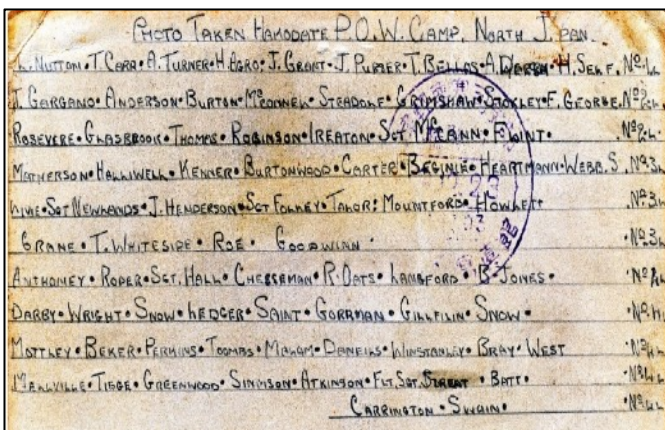 PHOTO TAKEN HAMODATE P.O.W. CAMP. NORTH J PAN.
NUTTON • T. CARR • A. TURNER • H. AGRO • J. GRANT • J. PURSER • T. BELLAS • A. • H. SELF. No.
J. GARGANO • ANDERSON • BURTON • McCONNEL • STEADOLF • GRIMSHAW • STOKLEY • F. GEORGE. No.
ROSEVERE • GLASBROOK • THOMAS • ROBINSON • IREATON • SGT McCANN • FLOINT • No. 2L
MATHERSON • HALLIWELL • KENNER • BURTONWOOD • CARTER • BEGINLE • HEARTMANN • WEBB. S. No. 3L
SGT NEWLANDS • J. HENDERSON • SGT FOLKEY • TALOR • MOUNTFORD • HOWLETT No. 3L
CRANE • T. WHITESIDE • ROE • GOODWINN • No. 3L
ANTHOMEY • ROPER • SGT. HALL • CHEESEMAN • R. OATS • LANGFORD • B. JONES • No.
DARBY • WRIGHT • SNOW • LEDGER • SAINT • GORRMAN • GILLFILIN • SNOW • No.
MOTTLEY • BEKER • PERKINS • TOOMBS • MALAM • DANEILS • WINSTANLEY • BRAY • WEST No. 4L
MALLVILLE • TIEGE • GREENWOOD • SIMMSON • ATKINSON • FLT. SGT. STREAT • BATT • No. 4L
CARRINGTON • SWAIN • No. 4L